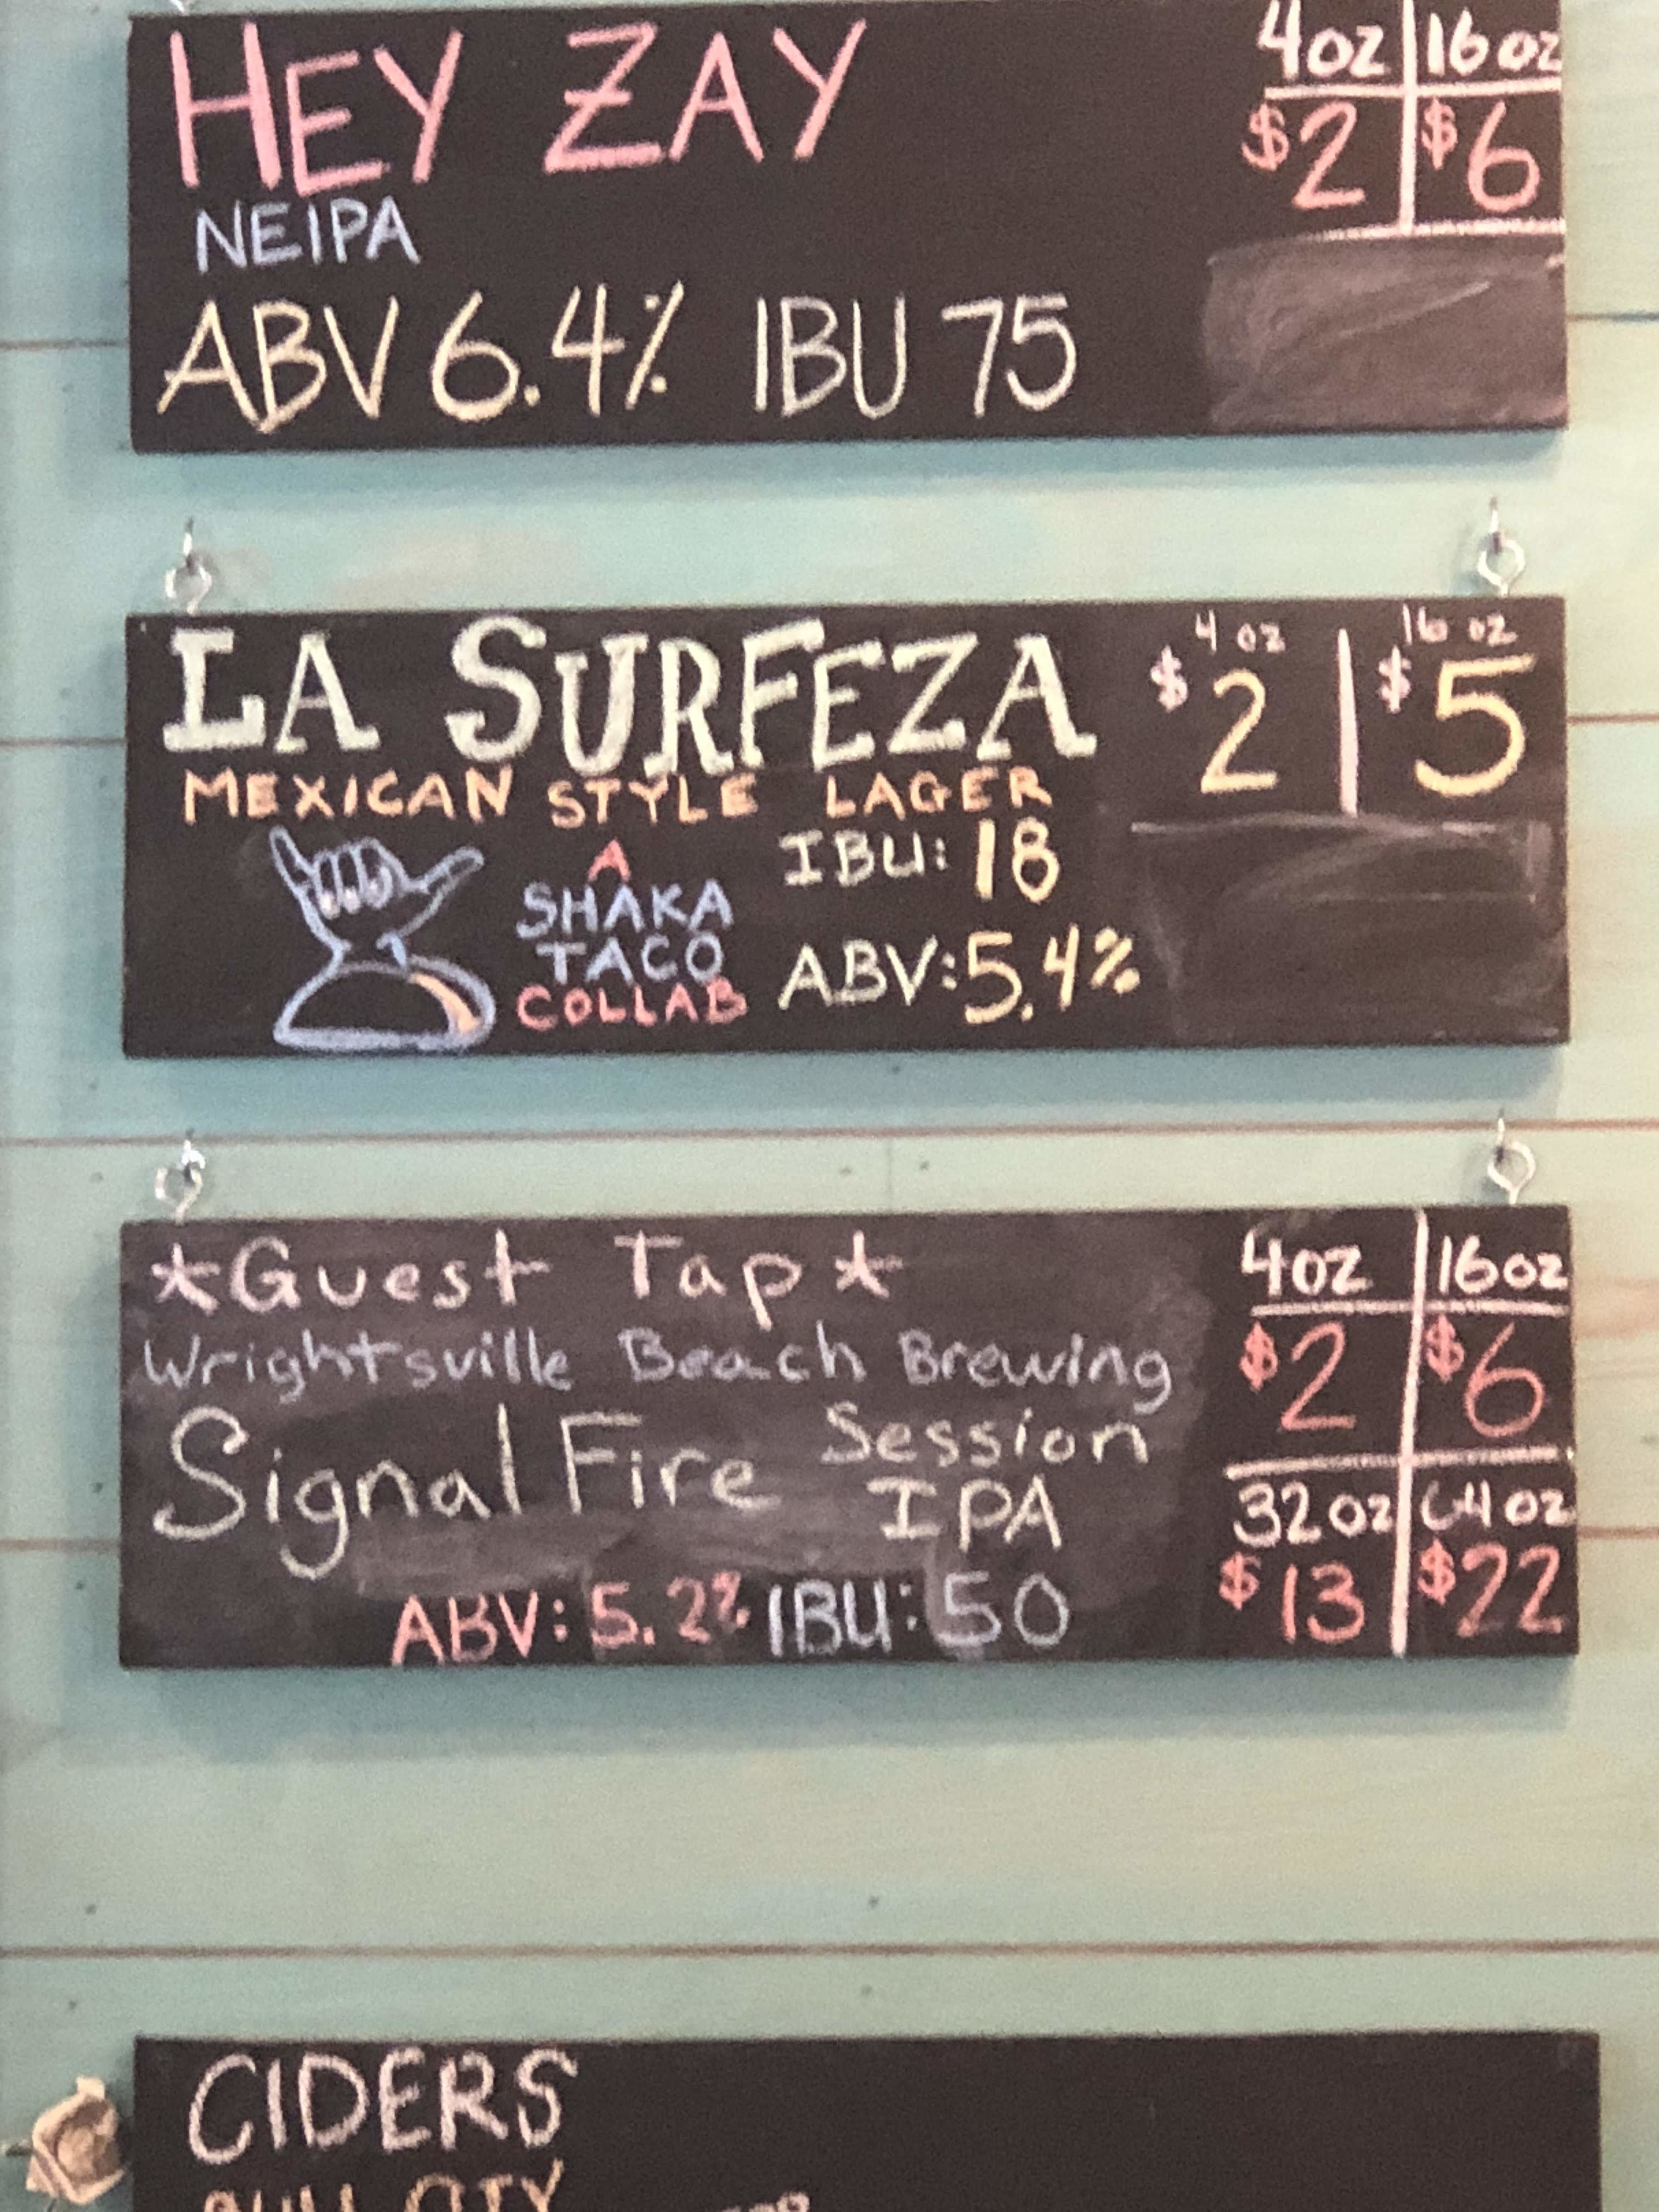 HEY ZAY
4oz 16oz
$2 $6
NEIPA
ABV 6.4% IBU 75
LA SURFEZA
4 oz 16 oz
$2 $5
MEXICAN STYLE LAGER
A
SHAKA
TACO
COLLAB
IBU: 18
ABV: 5.4%
*Guest Tap*
Wrightsville Beach Brewing
Signal Fire Session
IPA
ABV: 5.2% IBU: 50
4oz 16oz
$2 $6
32oz 64oz
$13 $22
CIDERS
BULL CITY